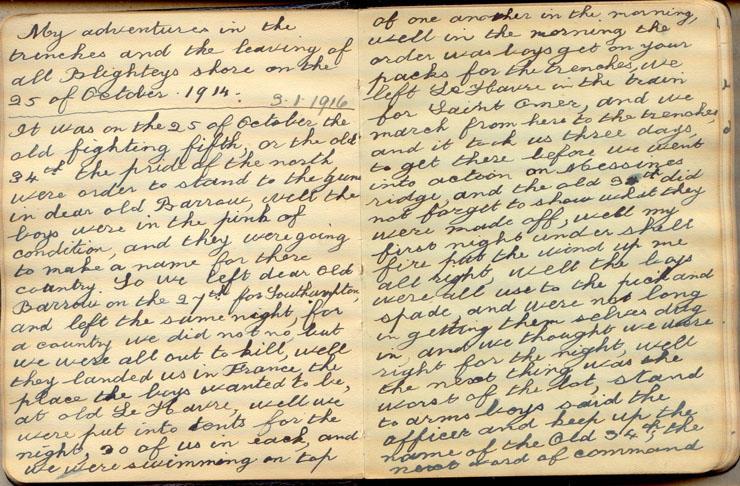 My adventures in the
trenches and the leaving of
all Blighteys shore on the
25 of October. 1914. 3.1.1916
It was on the 25 of October the
old fighting fifth, or the old
34th the pride of the north
were order to stand to the guns
in dear old Barrow, well the
boys were in the pink of
condition, and they were going
to make a name for there
country. So we left dear Old
Barrow on the 27th for Southampton,
and left the same night, for
a country we did not no, but
we were all out to kill, well
they landed us in France, the
place the boys wanted to be,
at old Le Havre, well we
were put into tents for the
night, 20 of us in each, and
we were swimming on top
of one another in the morning,
well in the morning the
order was boys get on your
packs for the trenches, we
left Le Havre in the train
for Saint Omer, and we
march from here to the trenches
and it took us three days,
to get there before we went
into action on Messines
ridge, and the old 34th did
not forget to show what they
were made off, well my
first night under shell
fire put the wind up me
all right, well the boys
were all use to the pick and
spade, and were not long
in getting them selves dug
in, and we thought we were
right for the night, well
the next thing was the
worst of the lot, stand
to arms boys said the
officer and keep up the
name of the Old 34th, the
next word of command